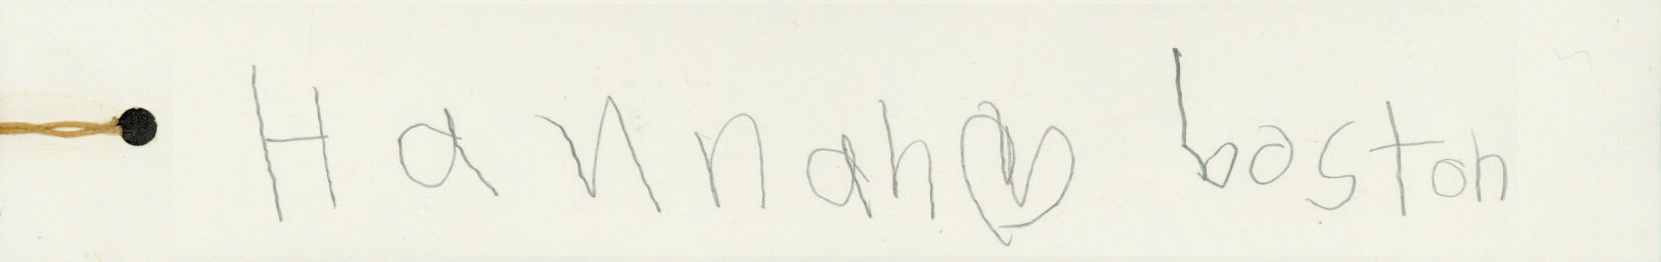 Hannah boston